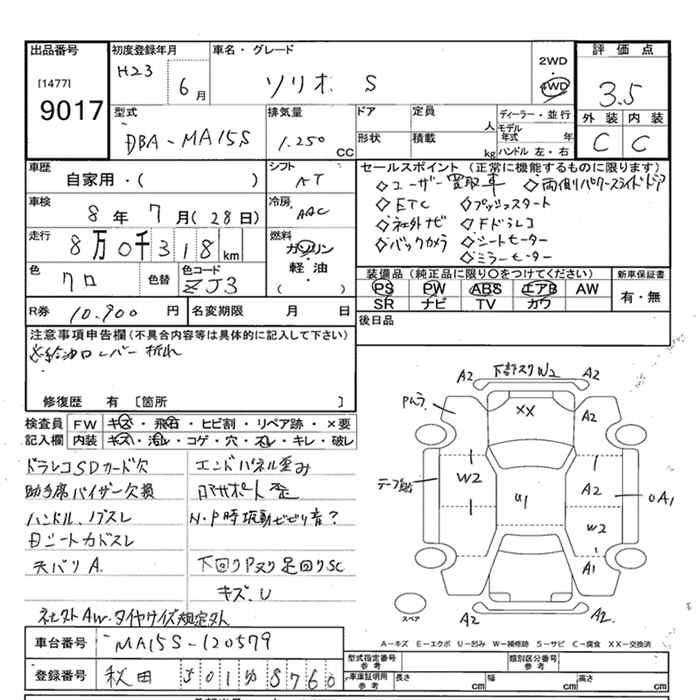 出品番号 初度登録年月 車名・グレード 2WD 評価点
[1477] H23 6月 ソリオ S 4WD 3.5
9017 型式 排気量 ドア 定員 人 ディーラー・並行 外装 内装
DBA-MA15S 1.250 CC 形状 積載 kg モデル年式 年 ハンドル 左・右 C C
車歴 シフト セールスポイント (正常に機能するものに限ります)
自家用・( ) AT ◇ユーザー買取車 ◇両側パワースライドドア
車検 8年7月(28日) 冷房 AAC ◇ETC ◇プッシュスタート
走行 8万0千318km 燃料 ガソリン ◇社外ナビ ◇Fドラレコ
軽油 ◇バックカメラ ◇シートヒーター
( ) ◇ミラーヒーター
色 クロ 色替 色コード ZJ3 装備品(純正品に限り○をつけてください) 新車保証書
PS PW ABS エアB AW 有・無
SR ナビ TV カワ
R券 10.900円 名変期限 月 日 後日品
注意事項申告欄(不具合内容等は具体的に記入して下さい)
給油口レバー折れ
修復歴 有 〔箇所 〕
検査員 FW キズ・飛石・ヒビ割・リペア跡・×要
記入欄 内装 キズ・汚レ・コゲ・穴・スレ・キレ・破レ
ドラレコSDカード欠 エンドパネル歪み
助手席バイザー欠損 コアサポート歪
ハンドル、ノブスレ N・P時振動ビビリ音?
Dシートカドスレ
天バリA. 下回りPヌリ 足回りSC
キズ、U
社外AW・タイヤサイズ規定外
A2 下部スリW2 A2
Pムラ XX A2
テープ跡 W2 U1 A2 UA1
W2
A1
スペア A2 A2
A-キズ E-エクボ U-凹み W-補修跡 S-サビ C-腐食 XX-交換済
車台番号 MA15S-120579
登録番号 秋田 501 8760
型式指定番号 参考 類別区分番号 参考
車庫証明用 参考 長さ cm 幅 cm 高さ cm